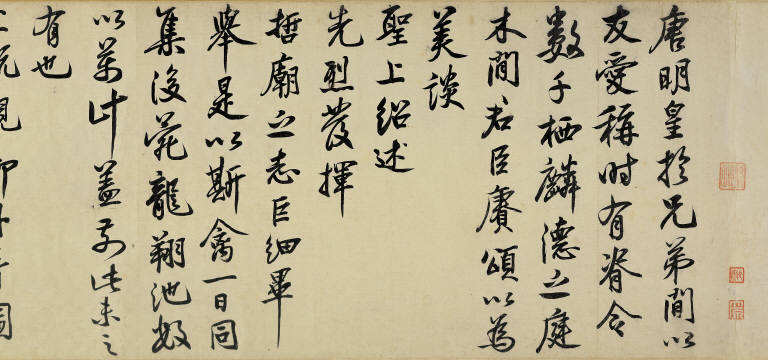 唐明皇於兄弟間以
友愛稱时有脊令
數千栖麟德之庭
木間君臣賡頌以為
美談
聖上紹述
先烈發揮
哲廟之志巨細畢
舉是以斯禽一日同
集後苑龍翔池數
以萬計蓋前此未之
有也